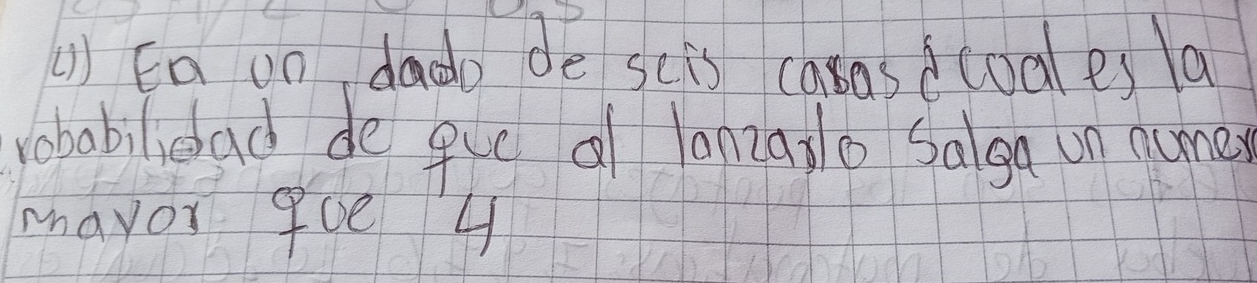 4) En un dado de seis casas ¿coal es la
robabilidad de que al lanzarlo salga un numer
mayor que 4